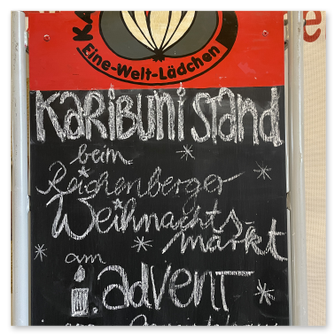 KA
Eine-Welt-Lädchen
KARIBUNI STAND
beim
Reichenberger
Weihnachts-
markt
am
1. ADVENT